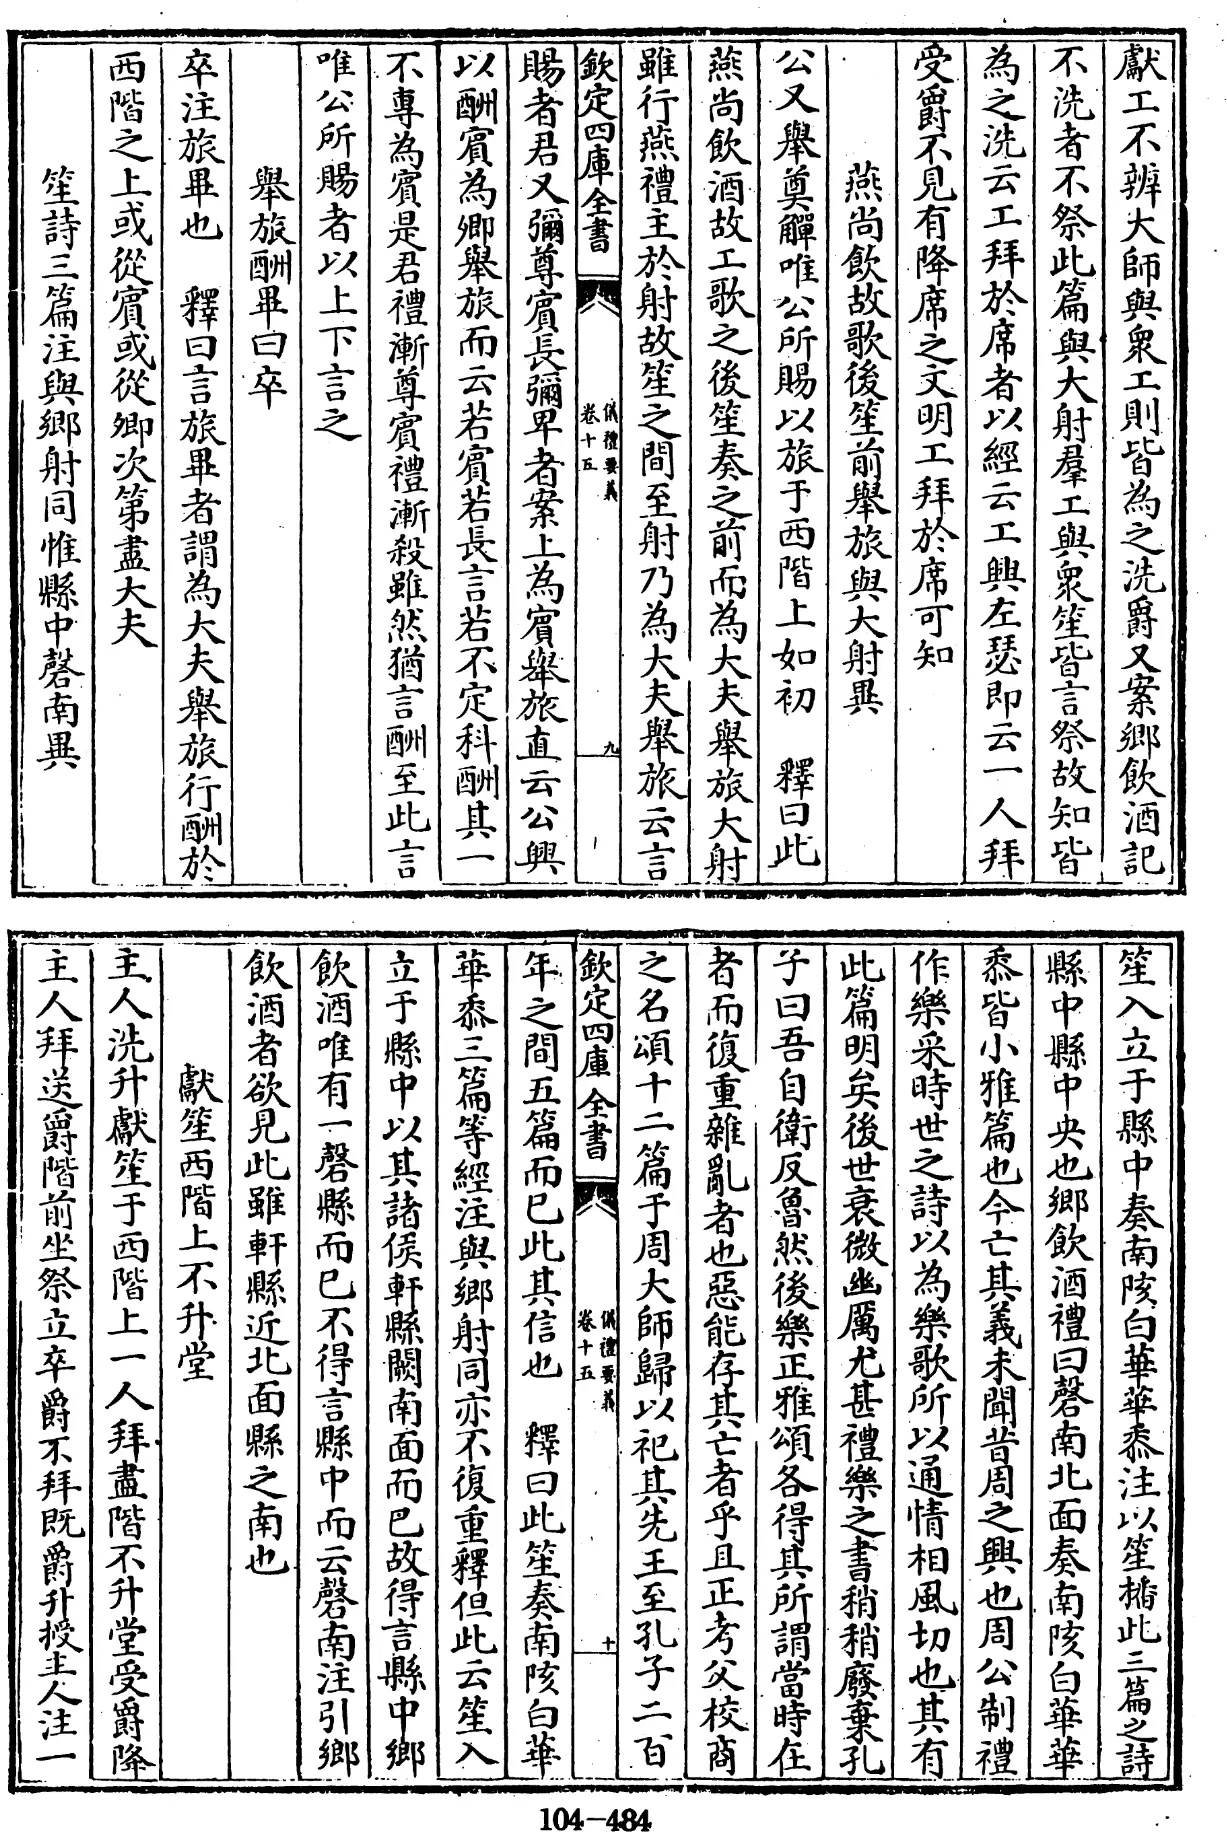 獻工不辨大師與衆工則皆為之洗爵又案鄉飲酒記
不洗者不祭此篇與大射羣工與衆笙皆言祭故知皆
為之洗云工拜於席者以經云工興左瑟即云一人拜
受爵不見有降席之文明工拜於席可知
燕尚飲故歌後笙前舉旅與大射異
公又舉奠觶唯公所賜以旅于西階上如初 釋曰此
燕尚飲酒故工歌之後笙奏之前而為大夫舉旅大射
雖行燕禮主於射故笙之間至射乃為大夫舉旅云言
欽定四庫全書
儀禮要義
卷十五
九
賜者君又彌尊賓長彌卑者案上為賓舉旅直云公興
以酬賓為卿舉旅而云若賓若長言若不定科酬其一
不專為賓是君禮漸尊賓禮漸殺雖然猶言酬至此言
唯公所賜者以上下言之
舉旅酬畢曰卒
卒注旅畢也 釋曰言旅畢者謂為大夫舉旅行酬於
西階之上或從賓或從卿次第盡大夫
笙詩三篇注與鄉射同惟縣中磬南異
笙入立于縣中奏南陔白華華黍注以笙播此三篇之詩
縣中縣中央也鄉飲酒禮曰磬南北面奏南陔白華華
黍皆小雅篇也今亡其義未聞昔周之興也周公制禮
作樂采時世之詩以為樂歌所以通情相風切也其有
此篇明矣後世衰微幽厲尤甚禮樂之書稍稍廢棄孔
子曰吾自衛反魯然後樂正雅頌各得其所謂當時在
者而復重雜亂者也惡能存其亡者乎且正考父校商
之名頌十二篇于周大師歸以祀其先王至孔子二百
欽定四庫全書
儀禮要義
卷十五
十
年之間五篇而已此其信也 釋曰此笙奏南陔白華
華黍三篇等經注與鄉射同亦不復重釋但此云笙入
立于縣中以其諸侯軒縣闕南面而已故得言縣中鄉
飲酒唯有一磬縣而已不得言縣中而云磬南注引鄉
飲酒者欲見此雖軒縣近北面縣之南也
獻笙西階上不升堂
主人洗升獻笙于西階上一人拜盡階不升堂受爵降
主人拜送爵階前坐祭立卒爵不拜既爵升授主人注一
104-484